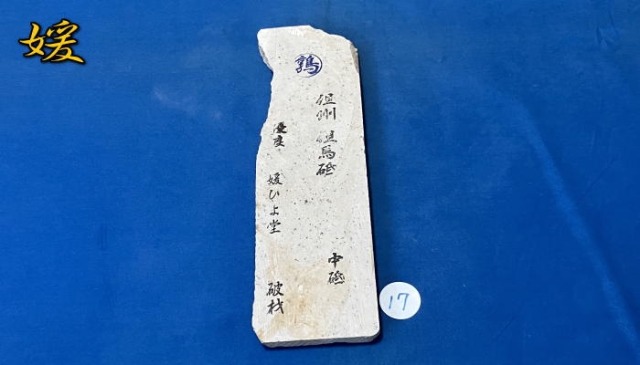 媛
鶉
但州 但馬砥
中砥
媛ひよ堂
破材
17